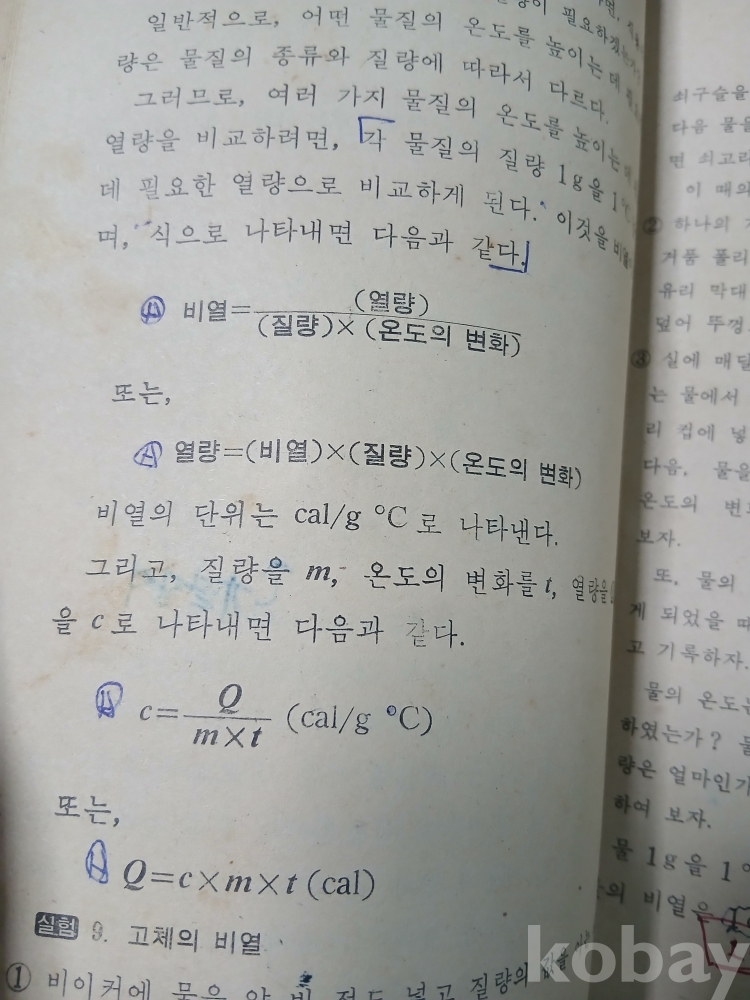 이 필요하겠는가
일반적으로, 어떤 물질의 온도를 높이는 데
량은 물질의 종류와 질량에 따라서 다르다.
그러므로, 여러 가지 물질의 온도를 높이는
열량을 비교하려면, 각 물질의 질량 1g을 1℃
데 필요한 열량으로 비교하게 된다. 이것을 비열
며, 식으로 나타내면 다음과 같다.
비열=(열량)/(질량)×(온도의 변화)
또는,
열량=(비열)×(질량)×(온도의 변화)
비열의 단위는 cal/g ℃로 나타낸다.
그리고, 질량을 m, 온도의 변화를 t, 열량을
을 c로 나타내면 다음과 같다.
c=Q/m×t (cal/g ℃)
또는,
Q=c×m×t (cal)
실험 9. 고체의 비열
① 비이커에 물을 약 반 정도 넣고 질량의
쇠구슬을
다음 물을
면 쇠고리
이 때의
② 하나의
거품 폴리
유리 막대
덮어 뚜껑
③ 실에 매달
는 물에서
리 컵에 넣
다음, 물을
온도의 변
보자.
또, 물의
게 되었을 때
고 기록하자.
물의 온도는
하였는가?
량은 얼마인가
하여 보자.
물 1g을 1℃
의 비열을
kobay